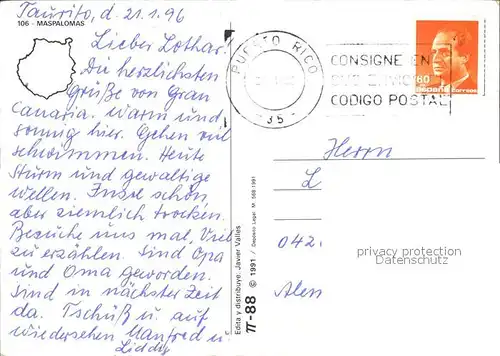 Taurito, d. 21.1.96
106 - MASPALOMAS
Lieber Lothar!
Die herzlichsten
grüße von Gran
Canaria. Warm und
sonnig hier. Gehen viel
schwimmen. Heute
Sturm und gewaltige
wellen. Insel schön,
aber ziemlich trocken.
Besuche uns mal, Viel
zu erzählen. Sind Opa
und Oma geworden.
Sind in nächster Zeit
da. Tschüß u. auf
wiedersehen Manfred u.
Liddy
Edita y distribuye: Javier Vallés
π-88 © 1991 / Depósito Legal: M. 568 1991
PUERTO RICO
-35-
CONSIGNE EN
CODIGO POSTAL
60
España Correos
Herrn
L
042.
Alen
privacy protection
Datenschutz